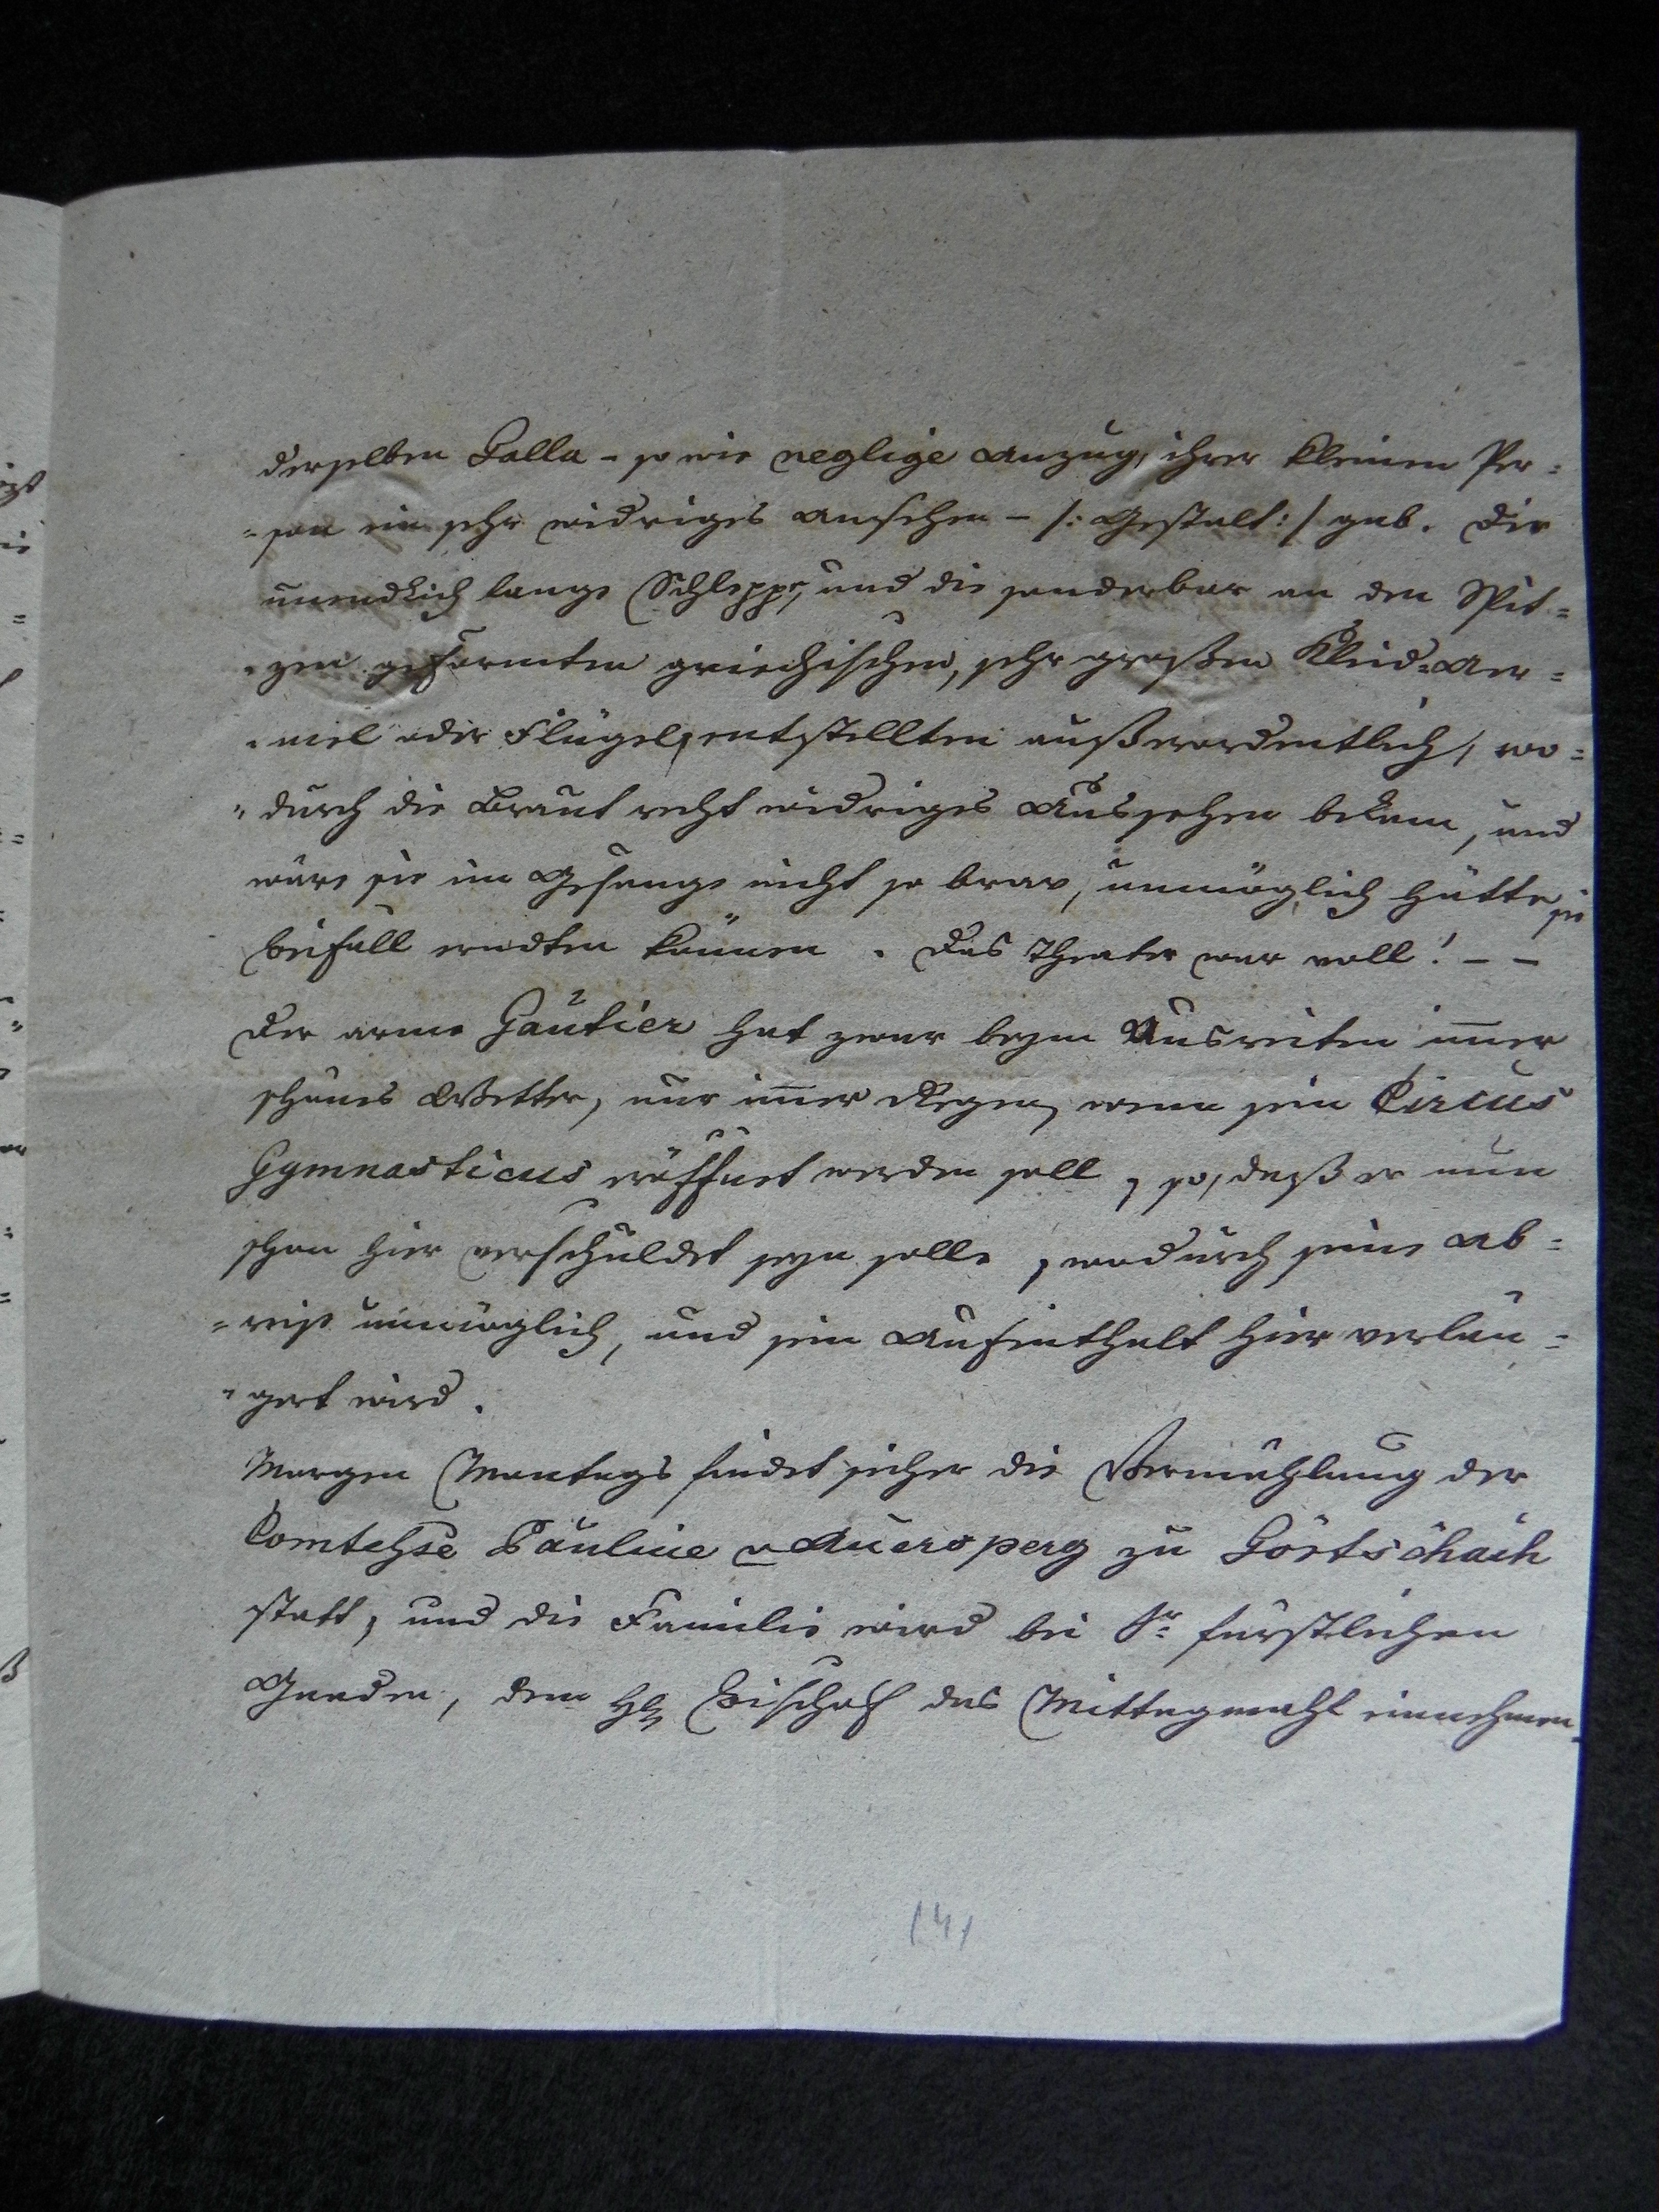 derselben Galla - so wie neglige Anzug, ihrer kleinen Per=
=son ein sehr widriges Ansehen - /: Gestalt :/ gab. Die
unendlich lange Schleppe, und die sonderbar an den Spit=
=zen geformten griechischen, sehr großen Kleid=Aer=
=mel oder Flügel, entstellten außerordentlich, wo=
=durch die Braut recht widriges Aussehen bekam, und
wäre sie im Gesange nicht so brav, unmöglich hätte sie
Beifall erndten können. Das Theater war voll! - -
Der arme Gautier hat zwar beym Ausreiten im̄er
schönes Wetter, nur im̄er Regen, wenn sein Circus
Gymnasticus eröffnet werden soll, so, daß er nun
schon hier verschuldet seyn solle, wodurch seine Ab=
=reise unmöglich, und sein Aufenthalt hier verlän=
=gert wird.
Morgen Montags findet sicher die Vermählung der
Comtehse Pauline v Auersperg zu Görtschach
statt, und die Familie wird bei Sr. fürstlichen
Gnaden, dem H Bischof das Mittagmahl einnehmen.
(4)